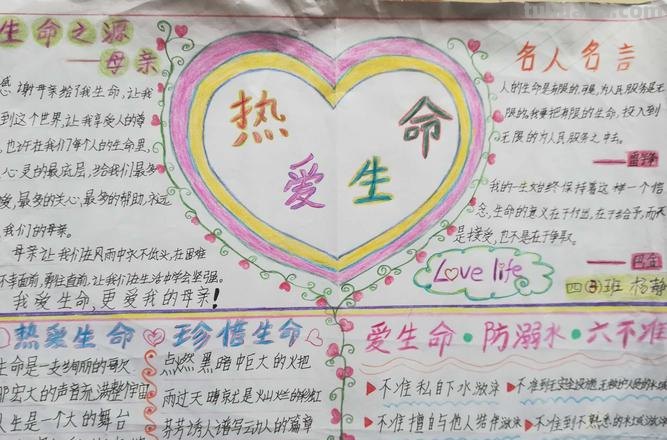 生命之源
——母亲
感谢母亲给了我生命,让我
到这个世界,让我享受人的尊
也许在我们每个人的生命里,
心灵的最底层,给我们最多
爱,最多的关心,最多的帮助,永远
我们的母亲。
母亲让我们在风雨中永不低头,在困难
面前,勇往直前,让我们在生活中学会坚强。
我爱生命,更爱我的母亲!
热爱生命
名人名言
人的生命是有限的,可是,为人民服务是无
限的,我要把有限的生命,投入到
无限的为人民服务之中去。
——雷锋
我的一生始终保持着这样一个信
念,生命的意义在于付出,在于给予,而不
是接受,也不是在于争取。
——巴金
Love life
四(3)班 杨静
热爱生命 珍惜生命
生命是一支绚丽的歌
那宏大的声音充满整个宇宙
人生是一个大的舞台
点燃黑暗中巨大的火把
雨过天晴京尤是火山烂的彩虹
芬芳诱人谱写云力人的篇章
爱生命·防溺水·六不准
不准私自下水游泳
不准擅自与他人结伴游泳
不准到不熟悉的水域游